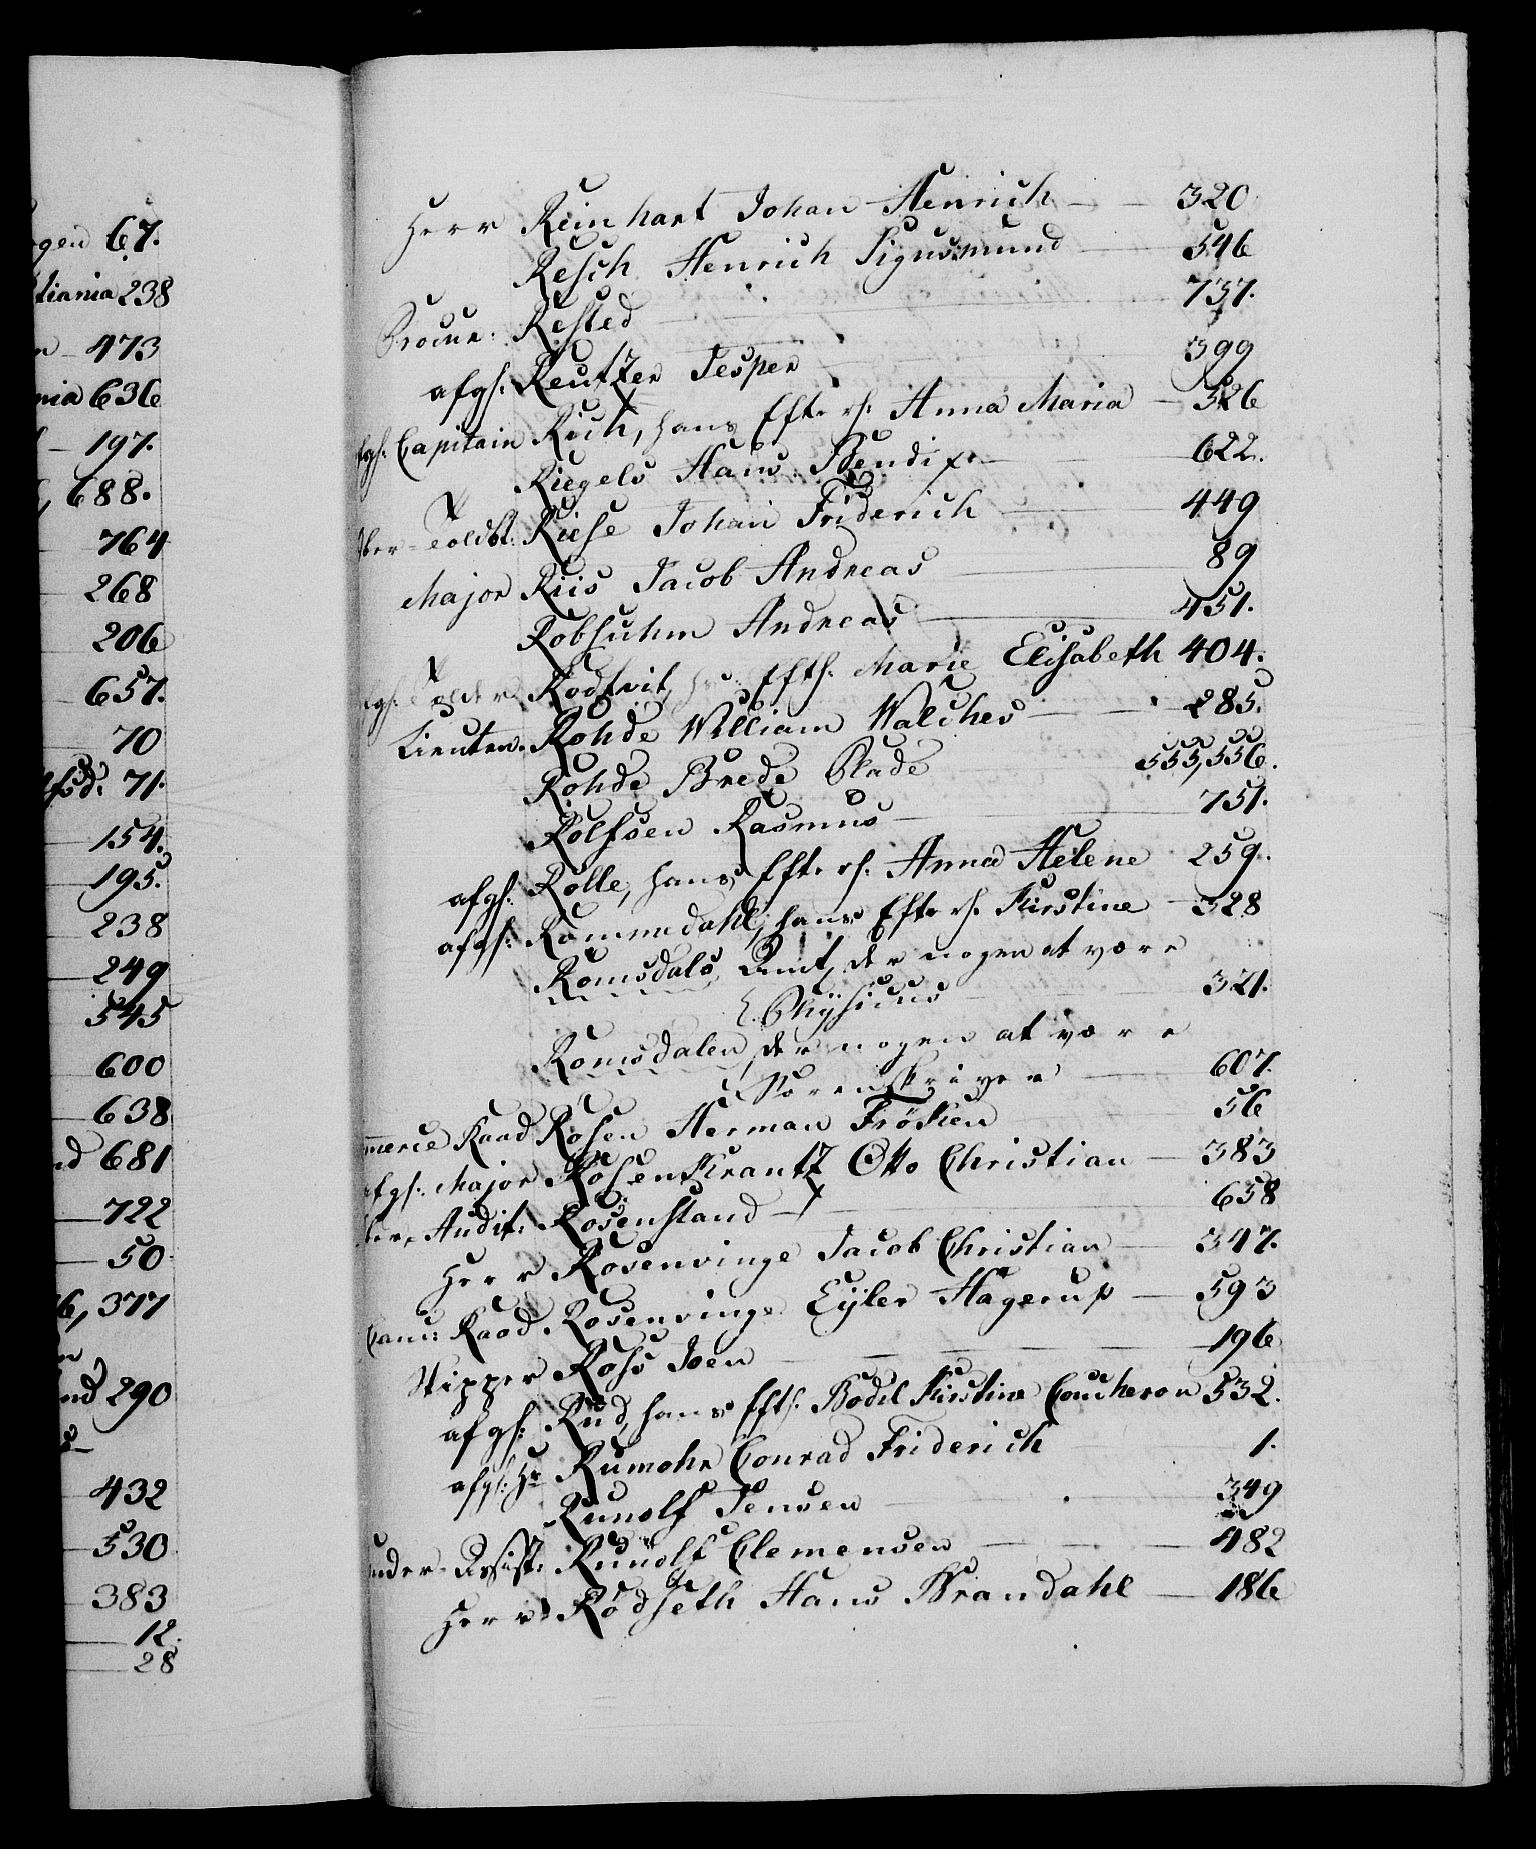 gen 67.
tiania 238
n 473
nia 636
197.
688.
764
268
206
657.
70
71.
154.
195.
238
249
545
600
638
nd 681
722
50
6, 377
and 290
432
530
383
12.
28
Herr Reinhart Johan Henrich 320
Resch Henrich Sigusmund 546
Procur: Rested 737.
afgh: Reutzer Jesper 399
fgh: Capitain Rich, hans Efterh: Anna Maria 526
Riegels Hans Bendix 622.
ber-Toldbt: Riese Johan Friderich 449
Major Riis Jacob Andreas 89
Robsuhm Andreas 451.
Rodtvit, Efth: Marie Elisabeth 404.
Lieuten. Rohde William Walches 285.
Rohde Brede Plade 555, 556.
Rolfsen Rasmus 751.
afgh: Rolle, hans Efterh: Anna Helene 259.
afgh: Rommedahl, hans Efterh: Kirstine 328
Romsdals Amt, der nogen at være
Physicus 321.
Romsdalen, der nogen at være
Sorenskriver 607.
merce Raad Rosen Herman Frøkien 56
afgh: Major Rosenkrantz Otto Christian 383
ber, Audit: Rosenstand 658
Herr Rosenvinge Jacob Christian 347.
Canc: Raad Rosenvinge Eyler Hagerup 593
Skipper Ross Joen 196
afgh: Rud, hans Efth: Bodil Kirstine Coucheron 532.
afgh: Hr Rumohr Conrad Friderich 1.
Runolf Jensen 349
nder-Assist: Runolf Clemensen 482
Herr Rødseth Hans Brandahl 186